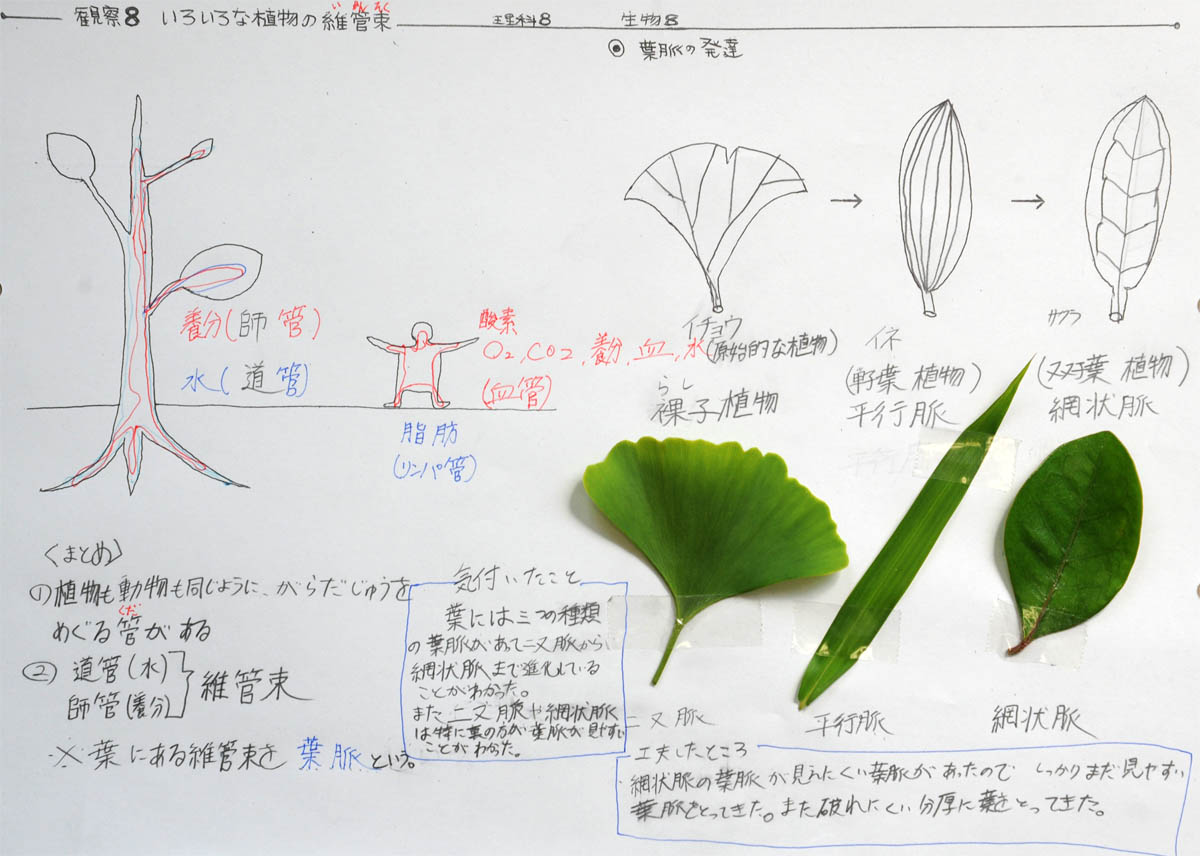 観察8 いろいろな植物の維管束
い かん そく
理科8 生物8
◉ 葉脈の発達
養分(師管)
水(道管)
酸素
O2, CO2, 養分, 血, 水
(血管)
脂肪
(リンパ管)
イチョウ
(原始的な植物)
らし
裸子植物
イネ
(単葉植物)
平行脈
平行脈
サクラ
(双葉植物)
網状脈
<まとめ>
①植物も動物も同じように、がらだじゅうを
くだ
めぐる管がある
② 道管(水)
師管(養分)
維管束
※葉にある維管束を 葉脈という。
気付いたこと
葉には三つの種類
の葉脈があて二又脈から
網状脈まで進化している
ことがわかった。
また二又脈や網状脈
は特に葉の方が葉脈が見やすい
ことがわらた。
二又脈
平行脈
網状脈
工夫したところ
網状脈の葉脈が見えにくい葉脈があったので しっかりまだ見やすい
葉脈をとってきた。また破れにくい分厚に葉をとってきた。